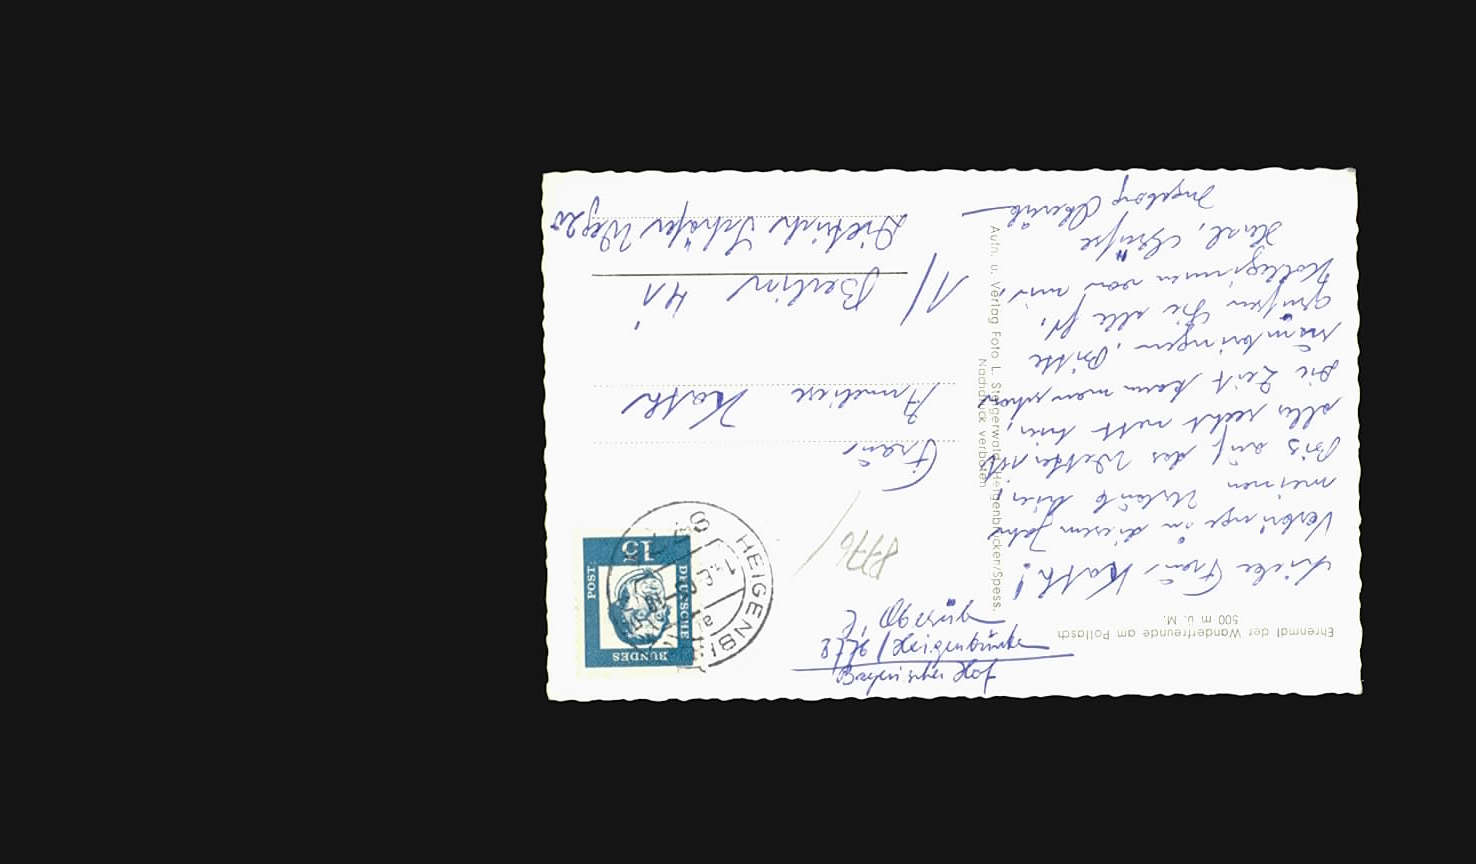 Ehrenmal der Wanderfreunde am Pollasch
500 m ü. M.
Liebe Frau Kath!
Verbringe in diesem Jahr
meinen Urlaub hier,
Bis auf das Wetter ist
alles recht nett hier,
die Zeit kann man schon
rumbringen. Bitte
grüßen Sie alle
Kolleginnen von mir,
Grüße
Ingeborg
Aufn. u. Verlag Foto L. Stengerwald, Heigenbrücken/Spess.
Nachdruck verboten
Bayrischer Hof
Heigenbrücken
8776
DEUSCHE
BUNDES
POST
15
HEIGENBR
Frau
Anneliese Kath
1/ Berlin 41
Dietrich Schäfer Weg 20